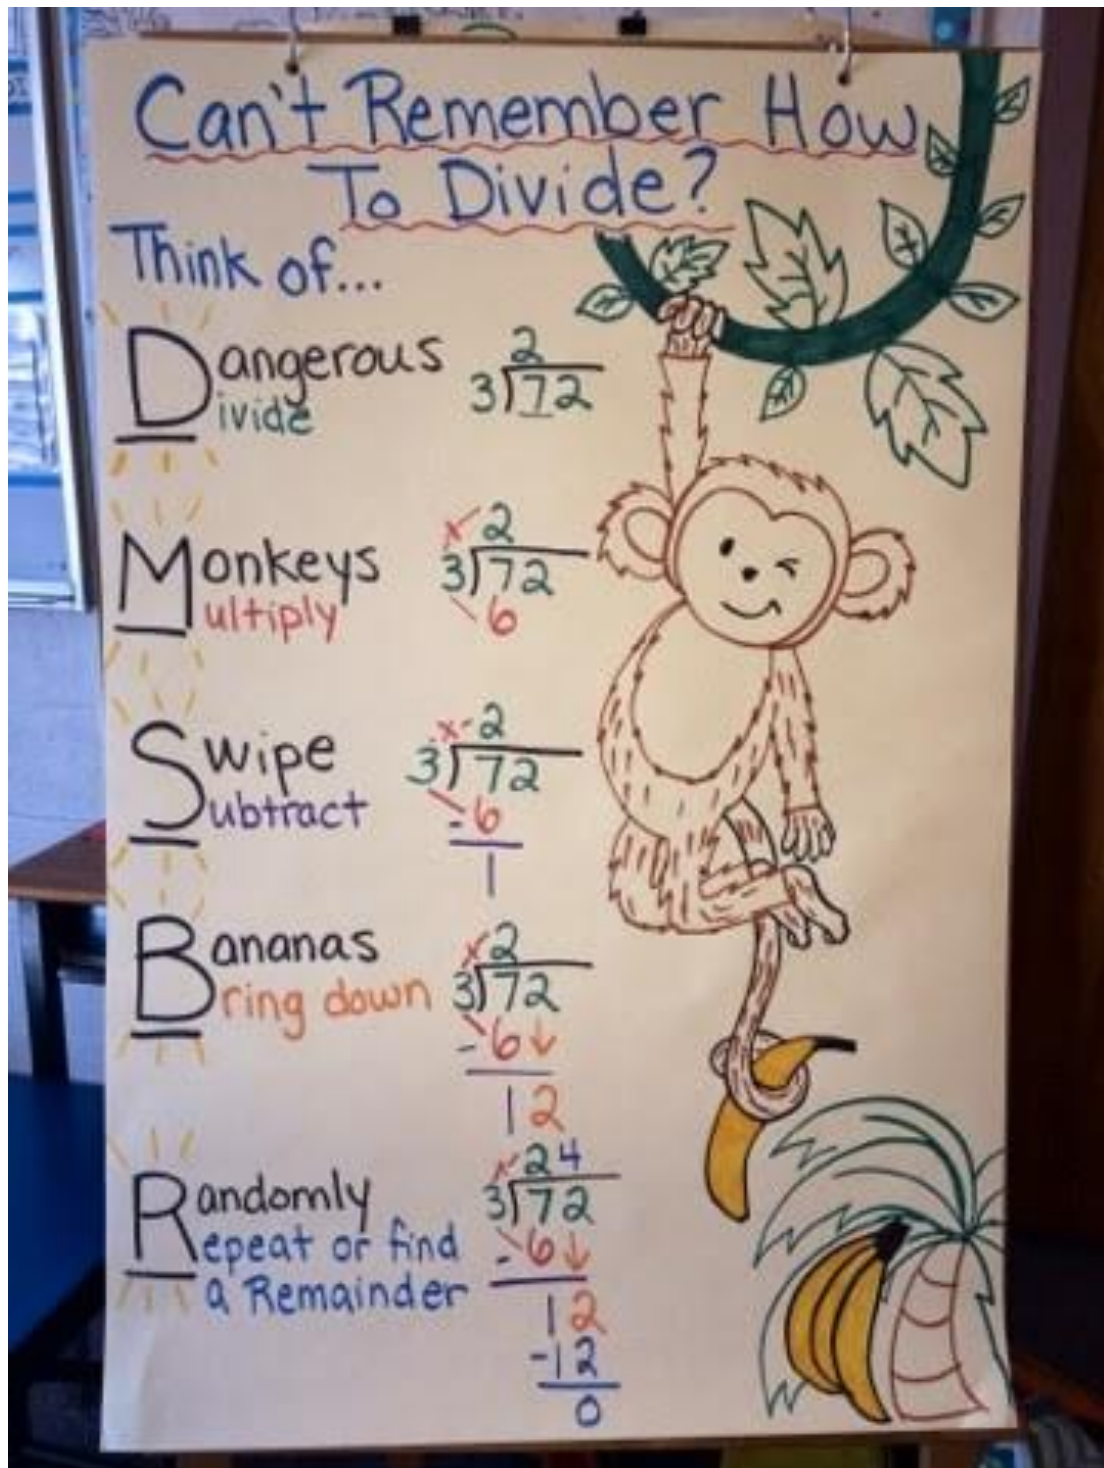 Can't Remember How
To Divide?
Think of...
Dangerous
Divide
2
3)72
Monkeys
Multiply
x 2
3)72
6
Swipe
Subtract
x 2
3)72
-6
1
Bananas
Bring down
x 2
3)72
-6↓
12
Randomly
Repeat or find
a Remainder
x 24
3)72
-6↓
12
-12
0